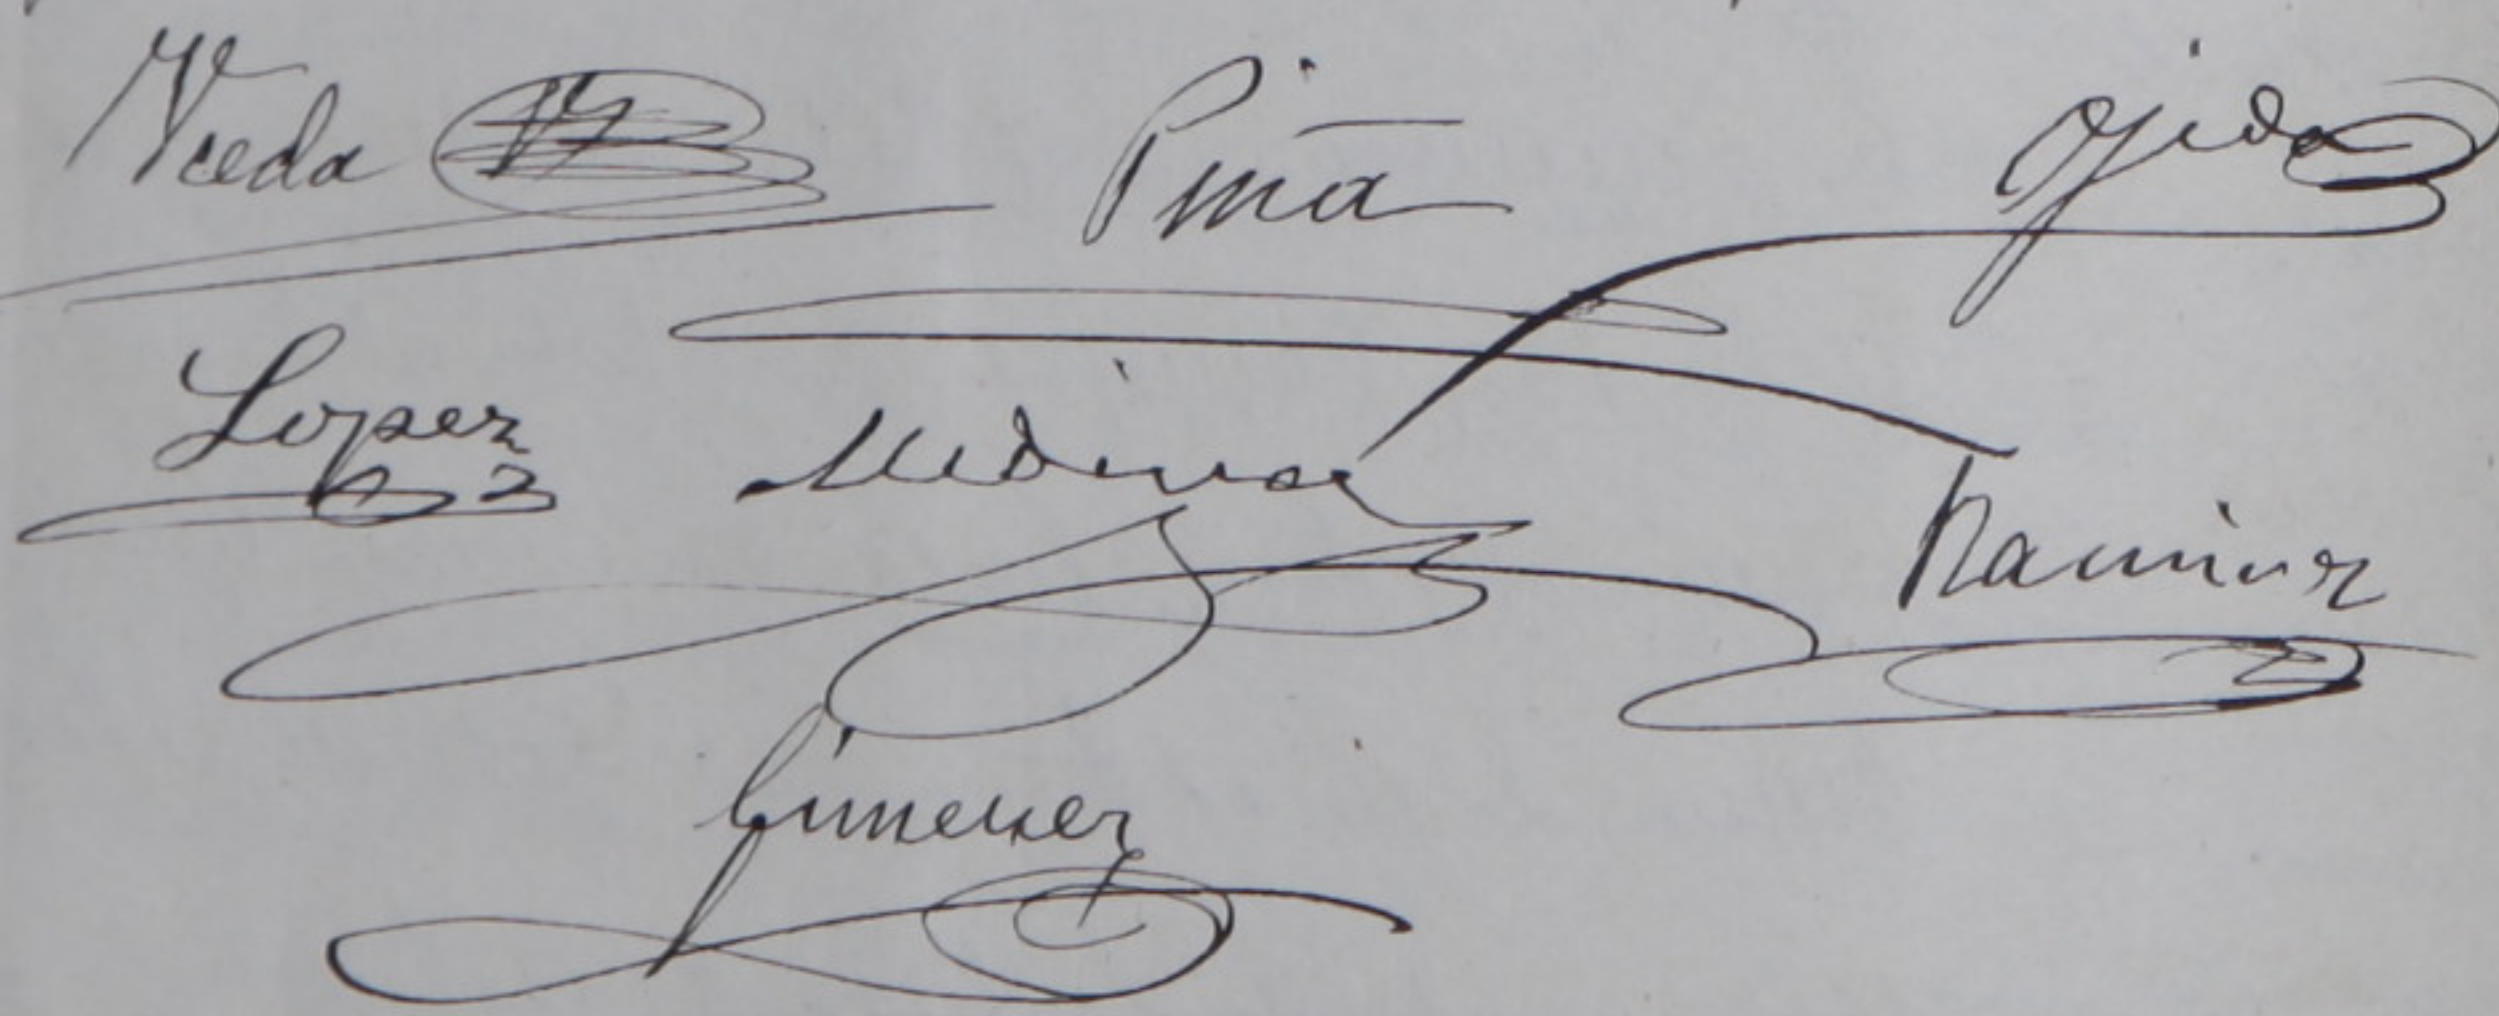 Uceda Piña Ojeda
Lopez Medina Ramirez
Gimenez